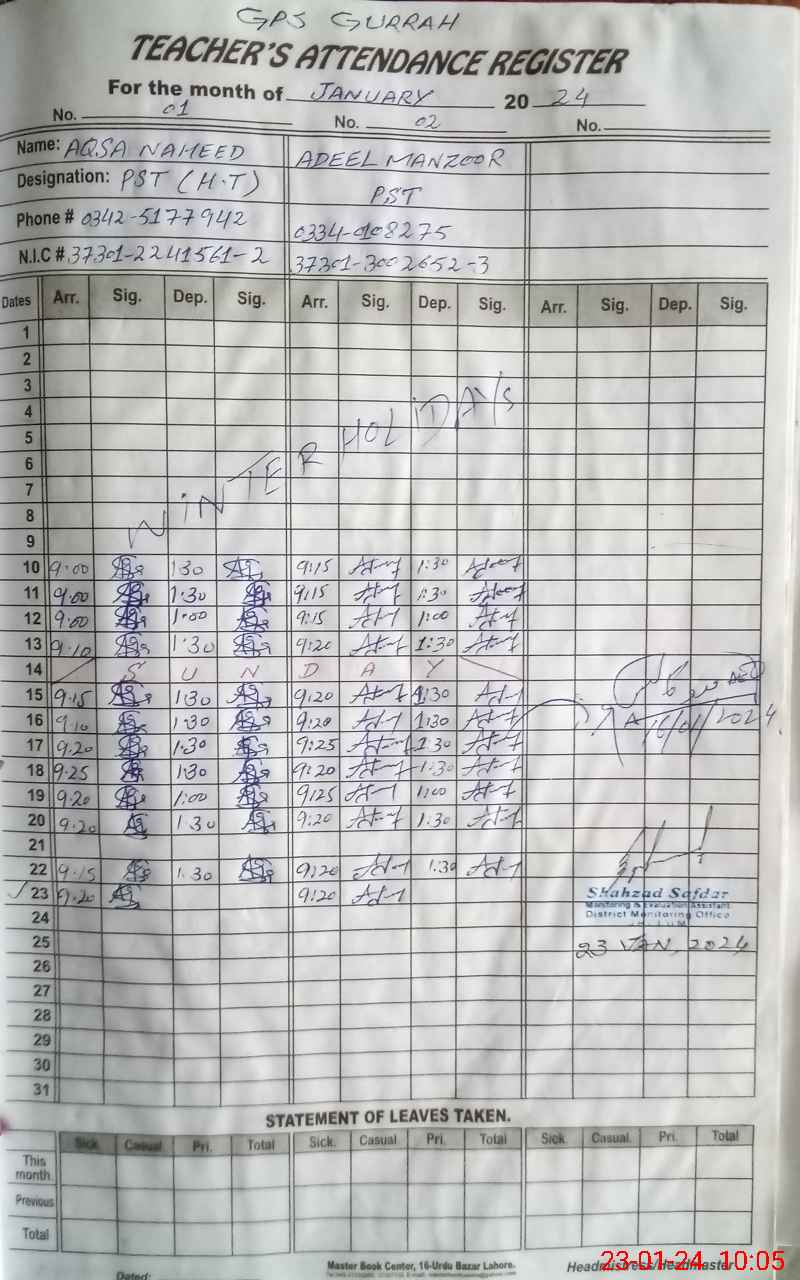 GPS GURRAH
TEACHER'S ATTENDANCE REGISTER
For the month of JANUARY 20 24
No. 01 No. 02 No.
Name: AQSA NAHEED ADEEL MANZOOR
Designation: PST (H.T) PST
Phone # 0342-5177942 0334-0108275
N.I.C # 37301-2241561-2 37301-3002652-3
Dates Arr. Sig. Dep. Sig. Arr. Sig. Dep. Sig. Arr. Sig. Dep. Sig.
1
2
3
4
5
6
7
8
9
WINTER HOLIDAYS
10 9:00 1:30 9:15 1:30
11 9:00 1:30 9:15 1:30
12 9:00 1:00 9:15 1:00
13 9:10 1:30 9:20 1:30
14 SUNDAY
15 9:15 1:30 9:20 1:30
16 9:10 1:30 9:20 1:30
17 9:20 1:30 9:25 1:30
16/01/2024
18 9:25 1:30 9:20 1:30
19 9:20 1:00 9:25 1:00
20 9:20 1:30 9:20 1:30
21
22 9:15 1:30 9:20 1:30
23 9:20 9:20
Shahzad Safdar
Monitoring & Evaluation Assistant
District Monitoring Office
24
25 23 JAN, 2024
26
27
28
29
30
31
STATEMENT OF LEAVES TAKEN.
Sick. Casual. Pri. Total Sick. Casual Pri. Total Sick. Casual. Pri. Total
This month.
Previous
Total
Dated: Master Book Center, 16-Urdu Bazar Lahore. Headmistress/Headmaster
23-01-24 10:05